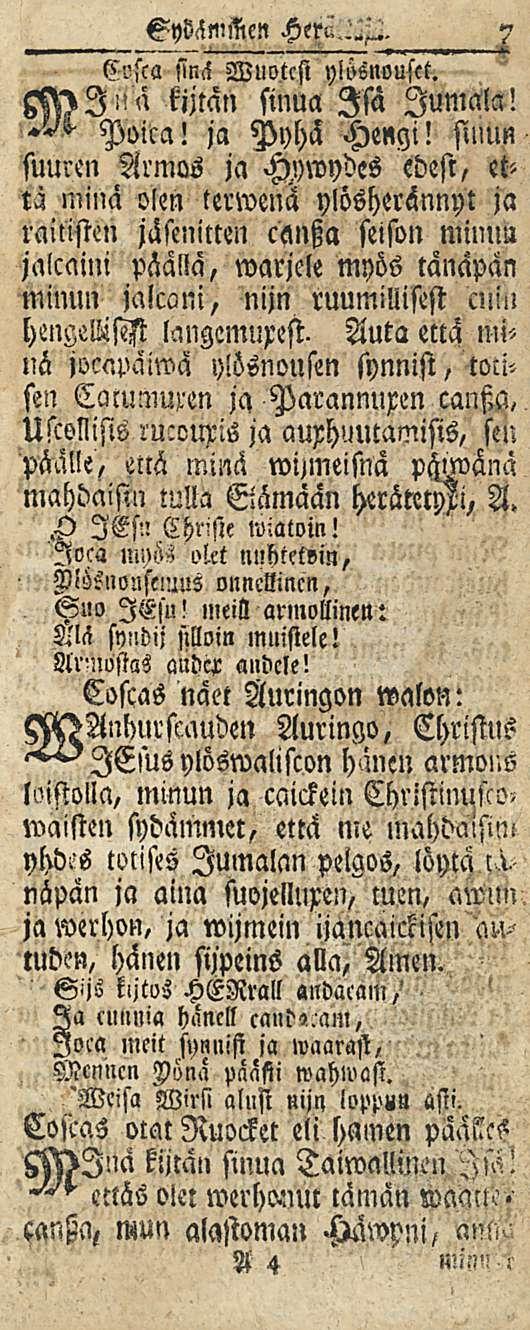 Sydämmen 7
Cosca sinä Wuotest ylösnouset.
MInä kijtän sinua Isä Jumala!
Poica! ja Pyhä Hengi! sinun
suuren Armos ja Hywydes edest, et-
tä minä olen terwenä ylösherännyt ja
raitisten jäsenitten canßa seison minun
jalcaini päällä, warjele myös tänäpän
minun jalcani, nijn ruumillisest cuin
hengellisest langemuxest. Auta että mi-
nä jocapäiwä ylösnousen synnist, toti-
sen Catumuxen ja Parannuxen canßa,
Uscollisis rucouxis ja auxhuutamisis, sen
päälle, että minä wijmeisnä päiwänä
mahdaisin tulla Elämään herätetyxi, A.
O JEsu Christe wiatoin!
Joca myös olet nuhtetoin,
Ylösnousemus onnellinen,
Suo JEsu! meill armollinen:
Älä syndij silloin muistele!
Armostas andex andele!
Coscas näet Auringon walon:
WAnhurscauden Auringo, Christus
JEsus ylöswaliscon hänen armons
loistolla, minun ja caickein Christinusco-
waisten sydämmet, että me mahdaisim
yhdes totises Jumalan pelgos, löytä tä-
näpän ja aina suojelluxen, tuen, awun
ja werhon, ja wijmein ijancaickisen au-
tuden, hänen sijpeins alla, Amen.
Sijs kijtos HERrall andacam,
Ja cunnia hänell candacam,
Joca meit synnist ja waarast,
Mennen Yönä päästi wahwast.
Weisa Wirsi alust nijn loppun asti.
Coscas otat Ruocket eli hamen päälles
MInä kijtän sinua Taiwallinen Isä!
ettäs olet werhonut tämän waatte-
canßa, mun alastoman Häwyni, anna
A 4